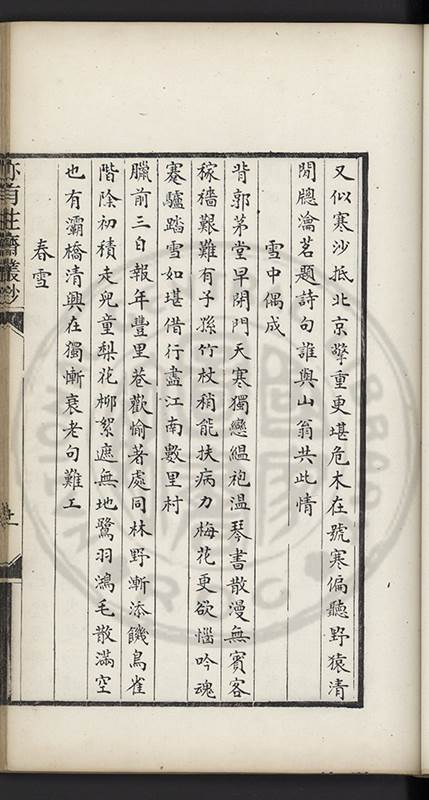 又似寒沙抵北京擎重更堪危木在號寒偏聽野猿清
閒牕瀹茗題詩句誰與山翁共此情
雪中偶成
背郭茅堂早閉門天寒獨戀縕袍溫琴書散漫無賓客
稼穡艱難有子孫竹杖稍能扶病力梅花更欲惱吟魂
蹇驢踏雪如堪借行盡江南數里村
臘前三白報年豐里巷歡愉著處同林野漸添饑鳥雀
階除初積走兒童梨花柳絮遮無地鷺羽鴻毛散滿空
也有灞橋清興在獨慚衰老句難工
春雪